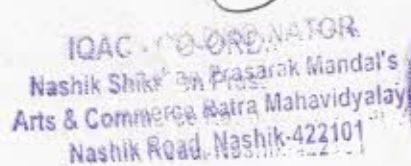 IQAC - CO-ORDINATOR
Nashik Prasarak Mandal's
Arts & Commerce Mahavidyalay
Nashik Road, Nashik-422101